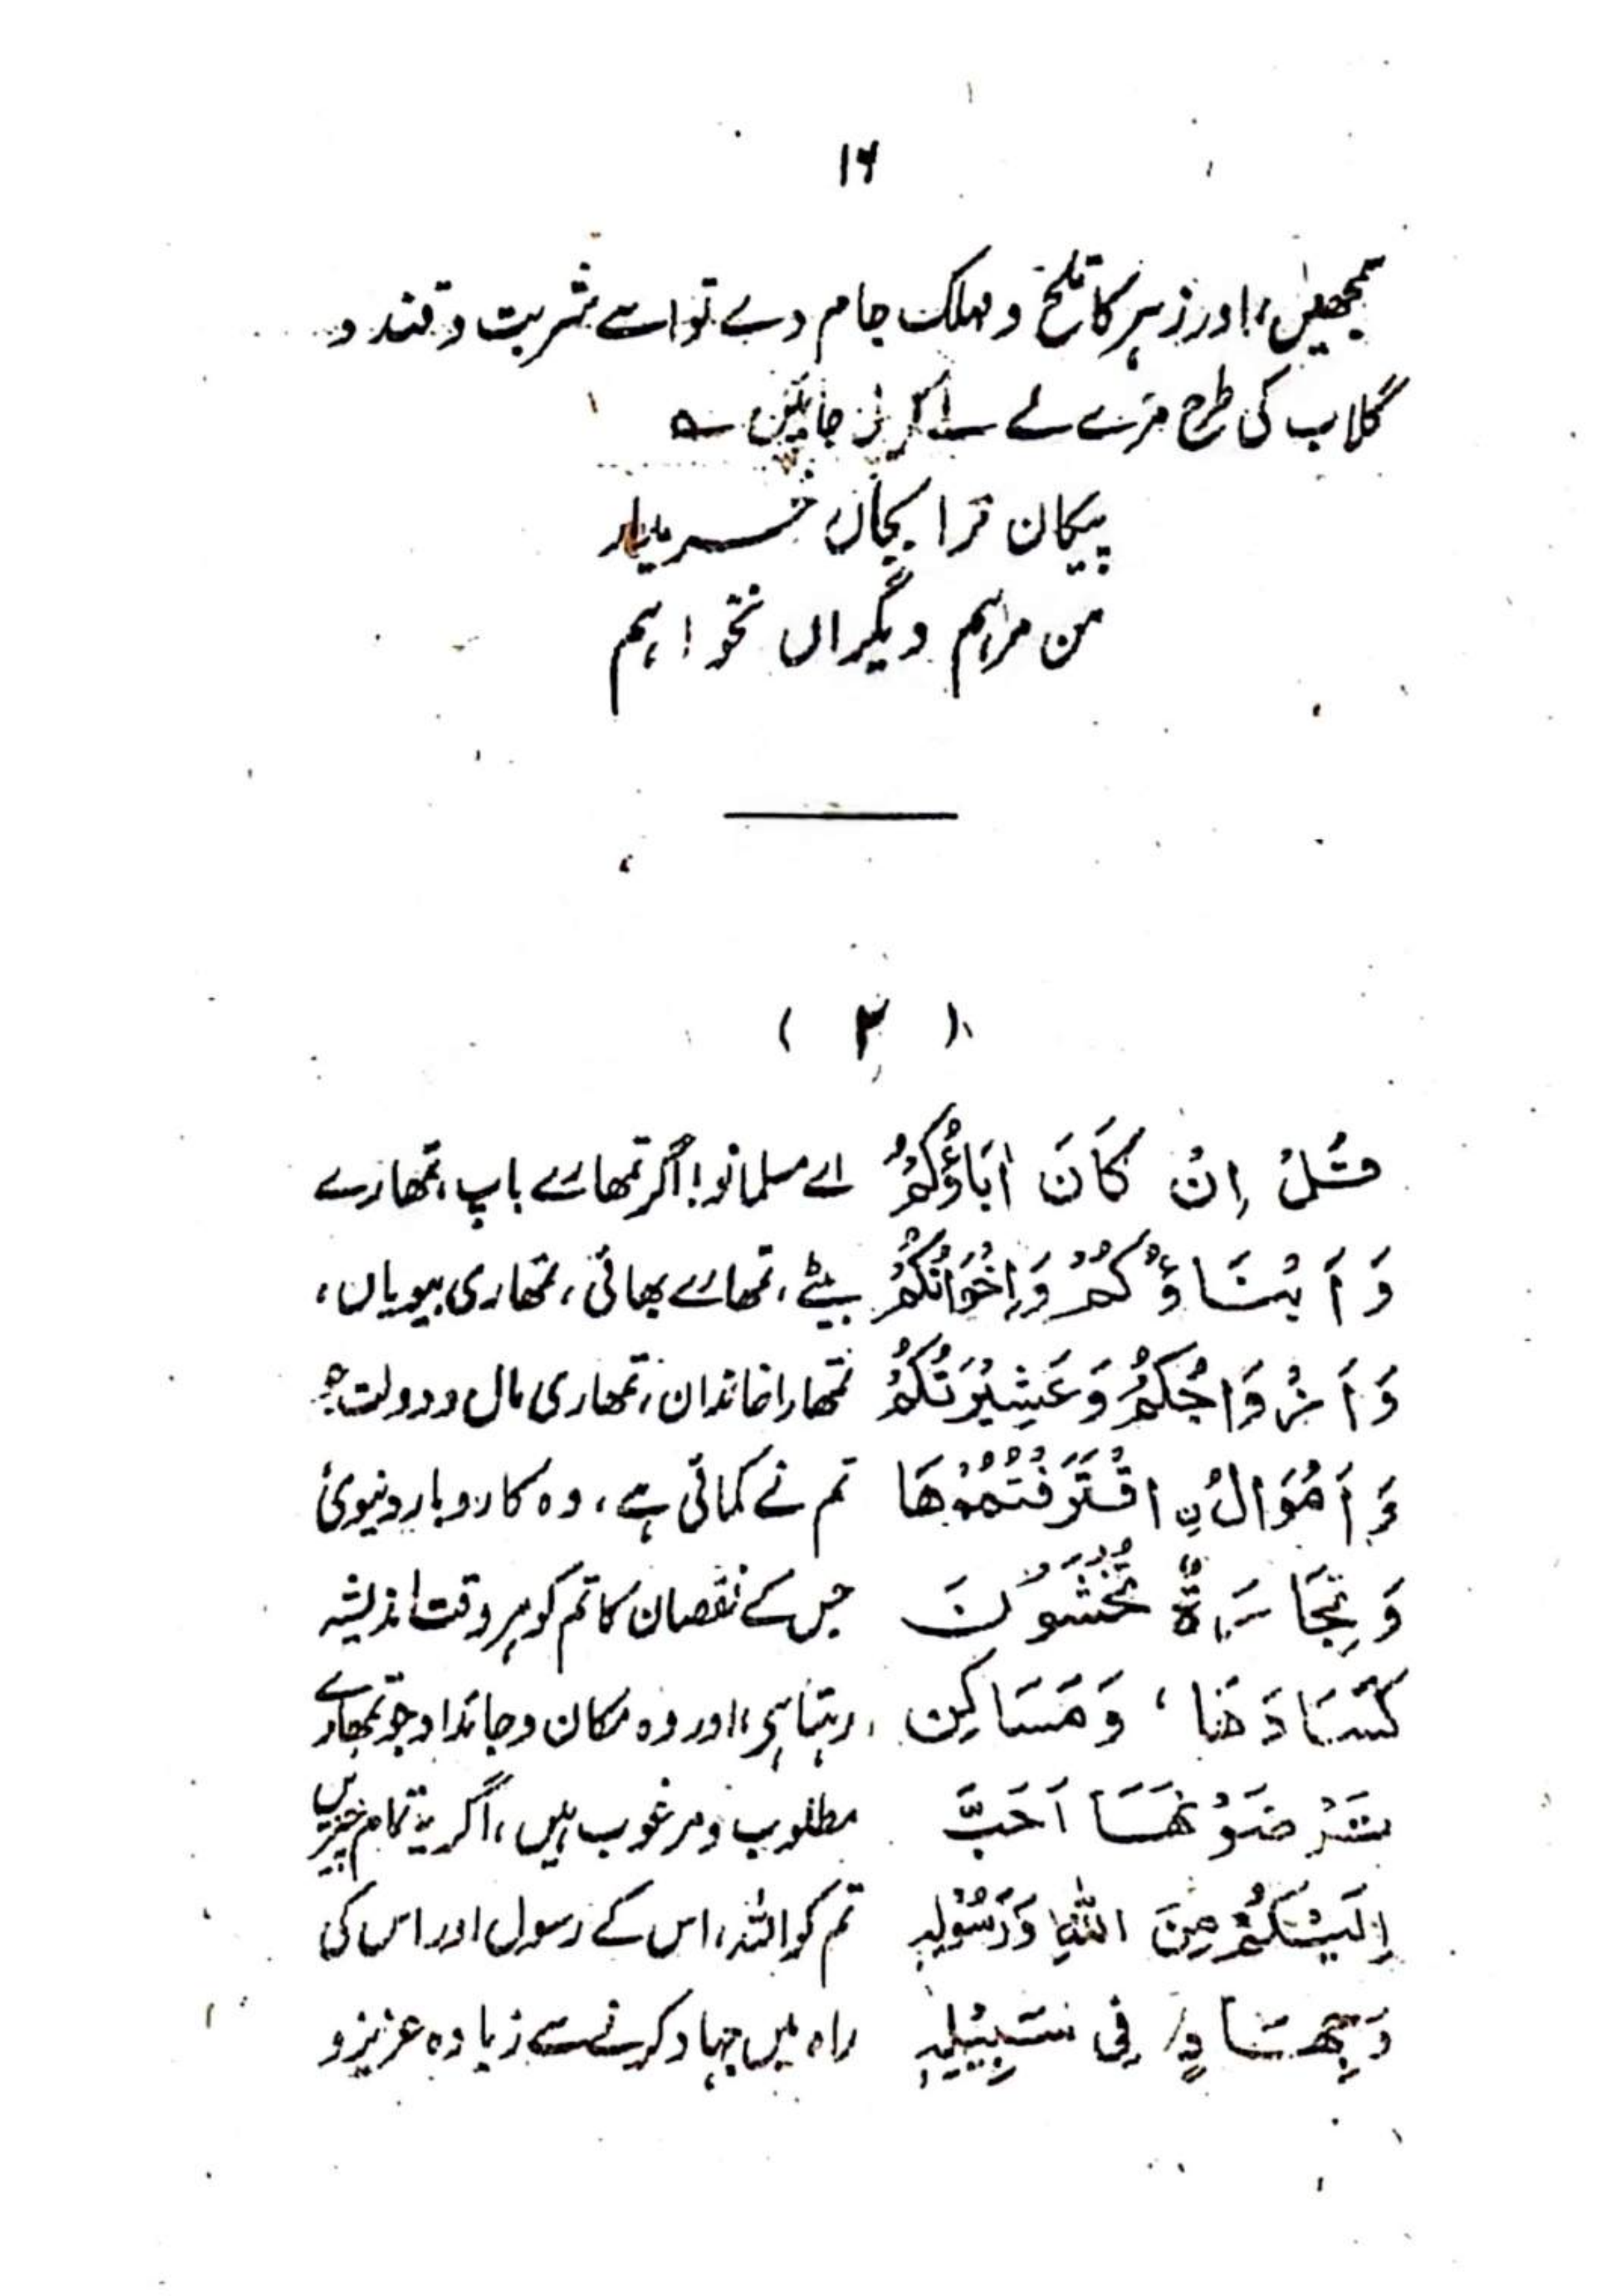 ۱۶
سمجھیں، اور زہر کا تلخ و مہلک جام دے تو اسے شربت و قند و
گلاب کی طرح مزے لے لے کر پی جائیں ؎
پیکان ترا بجاں خریدار
من مرہم دیگراں نخواہم
( ۳ )
قُلْ اِنْ کَانَ اٰبَاؤُکُمْ اے مسلمانو! اگر تمھارے باپ، تمھارے
وَ اَبْنَاؤُکُمْ وَ اِخْوَانُکُمْ بیٹے، تمھارے بھائی، تمھاری بیویاں،
وَ اَزْوَاجُکُمْ وَ عَشِیْرَتُکُمْ تمھارا خاندان، تمھاری مال و دولت جو
وَ اَمْوَالُ نِ اقْتَرَفْتُمُوْهَا تم نے کمائی ہے، وہ کاروبار دنیوی
وَ تِجَارَةٌ تَخْشَوْنَ جس کے نقصان کا تم کو ہر وقت اندیشہ
کَسَادَهَا، وَ مَسَاکِن رہتا ہی، اور وہ مکان و جائداد جو تمھارے
تَرْضَوْنَهَا اَحَبَّ مطلوب و مرغوب ہیں، اگر یہ تمام چیزیں
اِلَیْکُمْ مِنَ اللّٰهِ وَرَسُوْلِهٖ تم کو اللہ، اس کے رسول اور اس کی
وَ جِهَادٍ فِی سَبِیْلِهٖ راہ میں جہاد کرنے سے زیادہ عزیز و